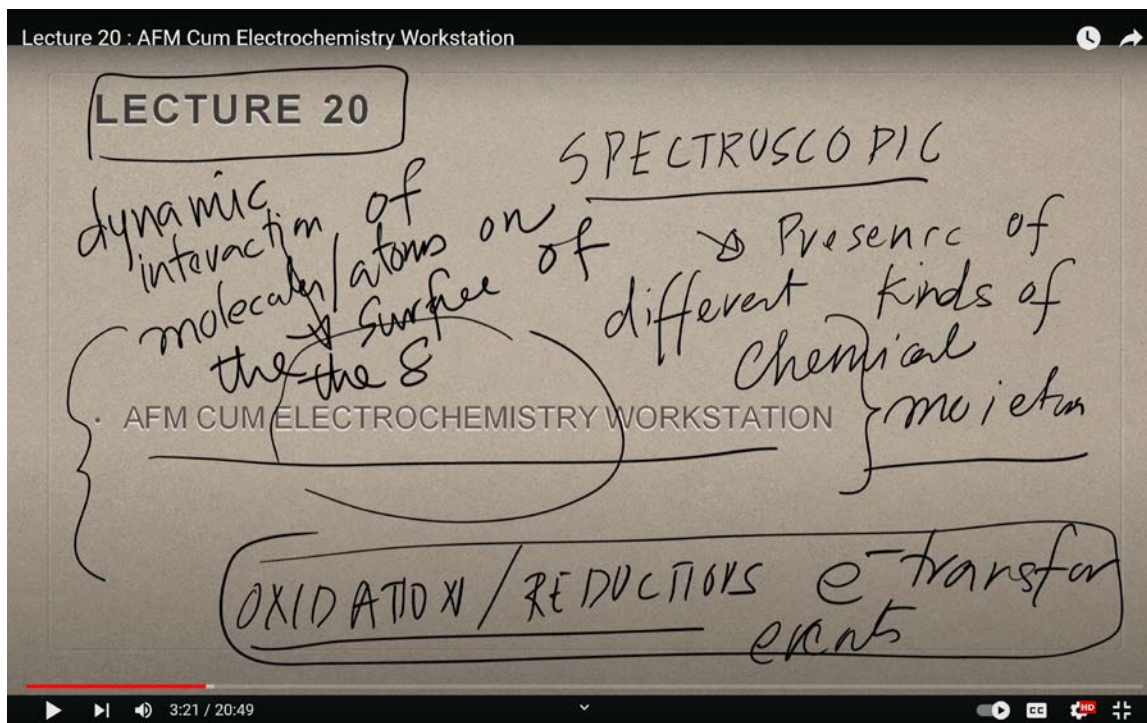 Lecture 20 : AFM Cum Electrochemistry Workstation
LECTURE 20
dynamic
interaction of
molecules/atoms on
the surface of
the S
SPECTRUSCOPIC
Presence of
different kinds of
chemical
moieties
• AFM CUM ELECTROCHEMISTRY WORKSTATION
OXIDATION/REDUCTIONS e⁻ transfer
events
3:21 / 20:49
CC
HD